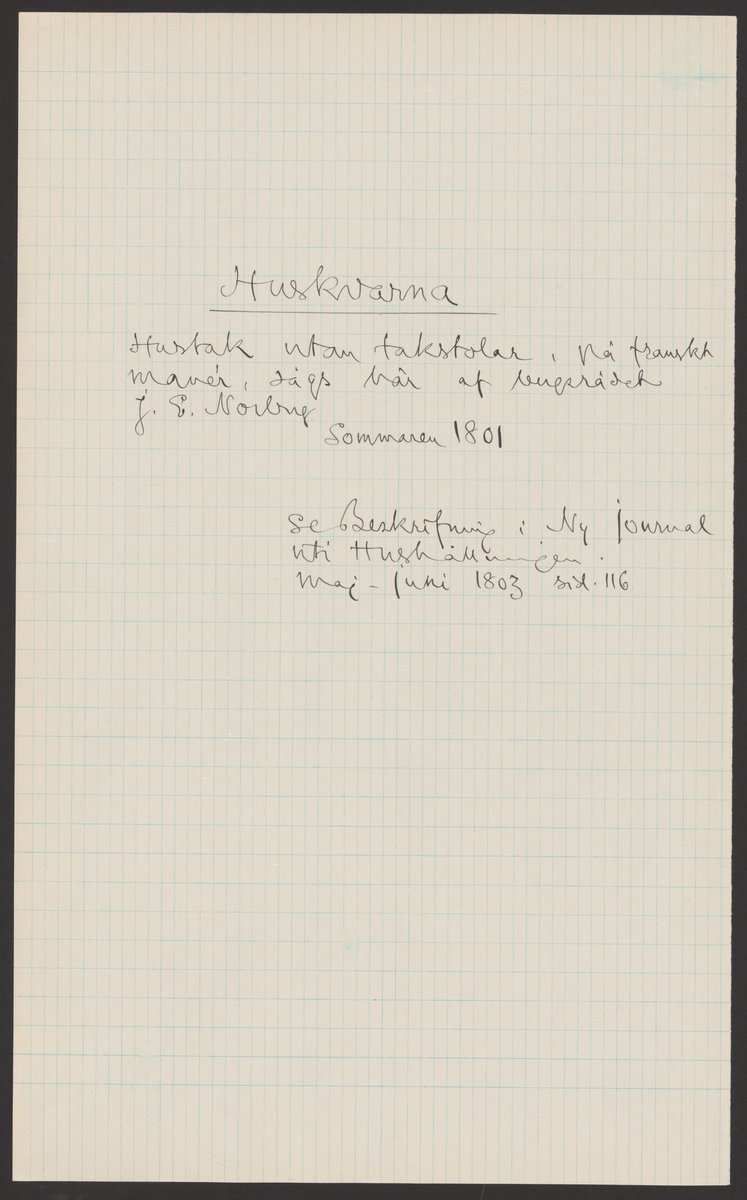 Huskvarna
Hustak utan takstolar, på franskt
manér, sågs här af bergsrådet
J. E. Norberg
Sommaren 1801
Se Beskrifning i Ny Journal
uti Hushållningen.
Maj - juni 1803 sid. 116